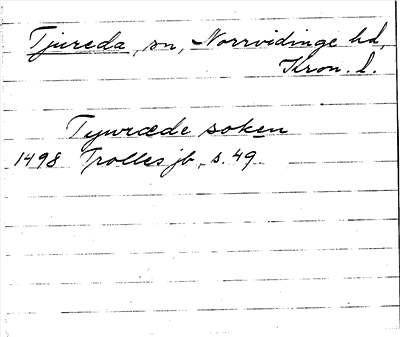 Tjureda, sn, Norrvidinge hd,
Kron. l.
Tywræde soken
1498 Trolles jb, s. 49